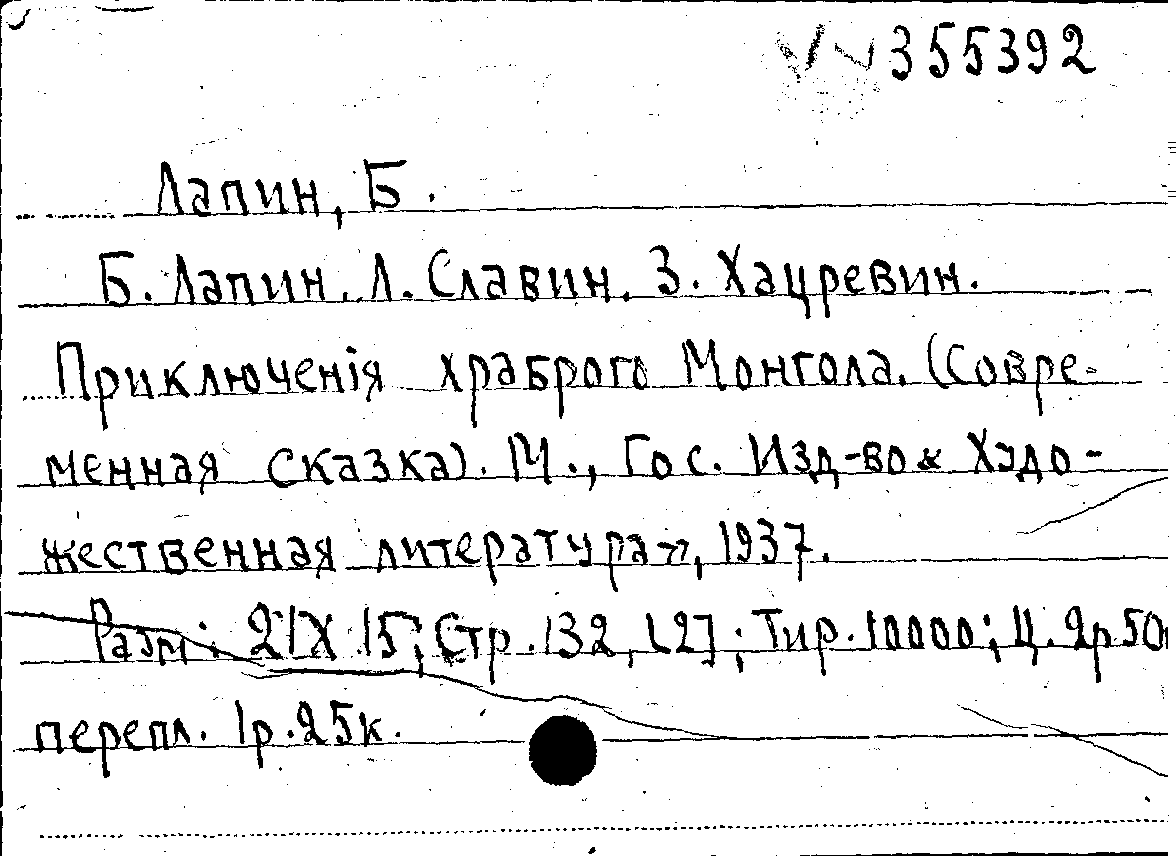 355392
Лапин, Б.
Б. Лапин. Л. Славин. З. Хацревин.
Приключенія храброго Монгола. (Совре-
менная сказка). М., Гос. Изд-во « Худо-
жественная литература», 1937.
Разм: 21X15; Стр. 132, [2]; Тир. 10000; Ц. 2р.50
перепл. 1р.25к.